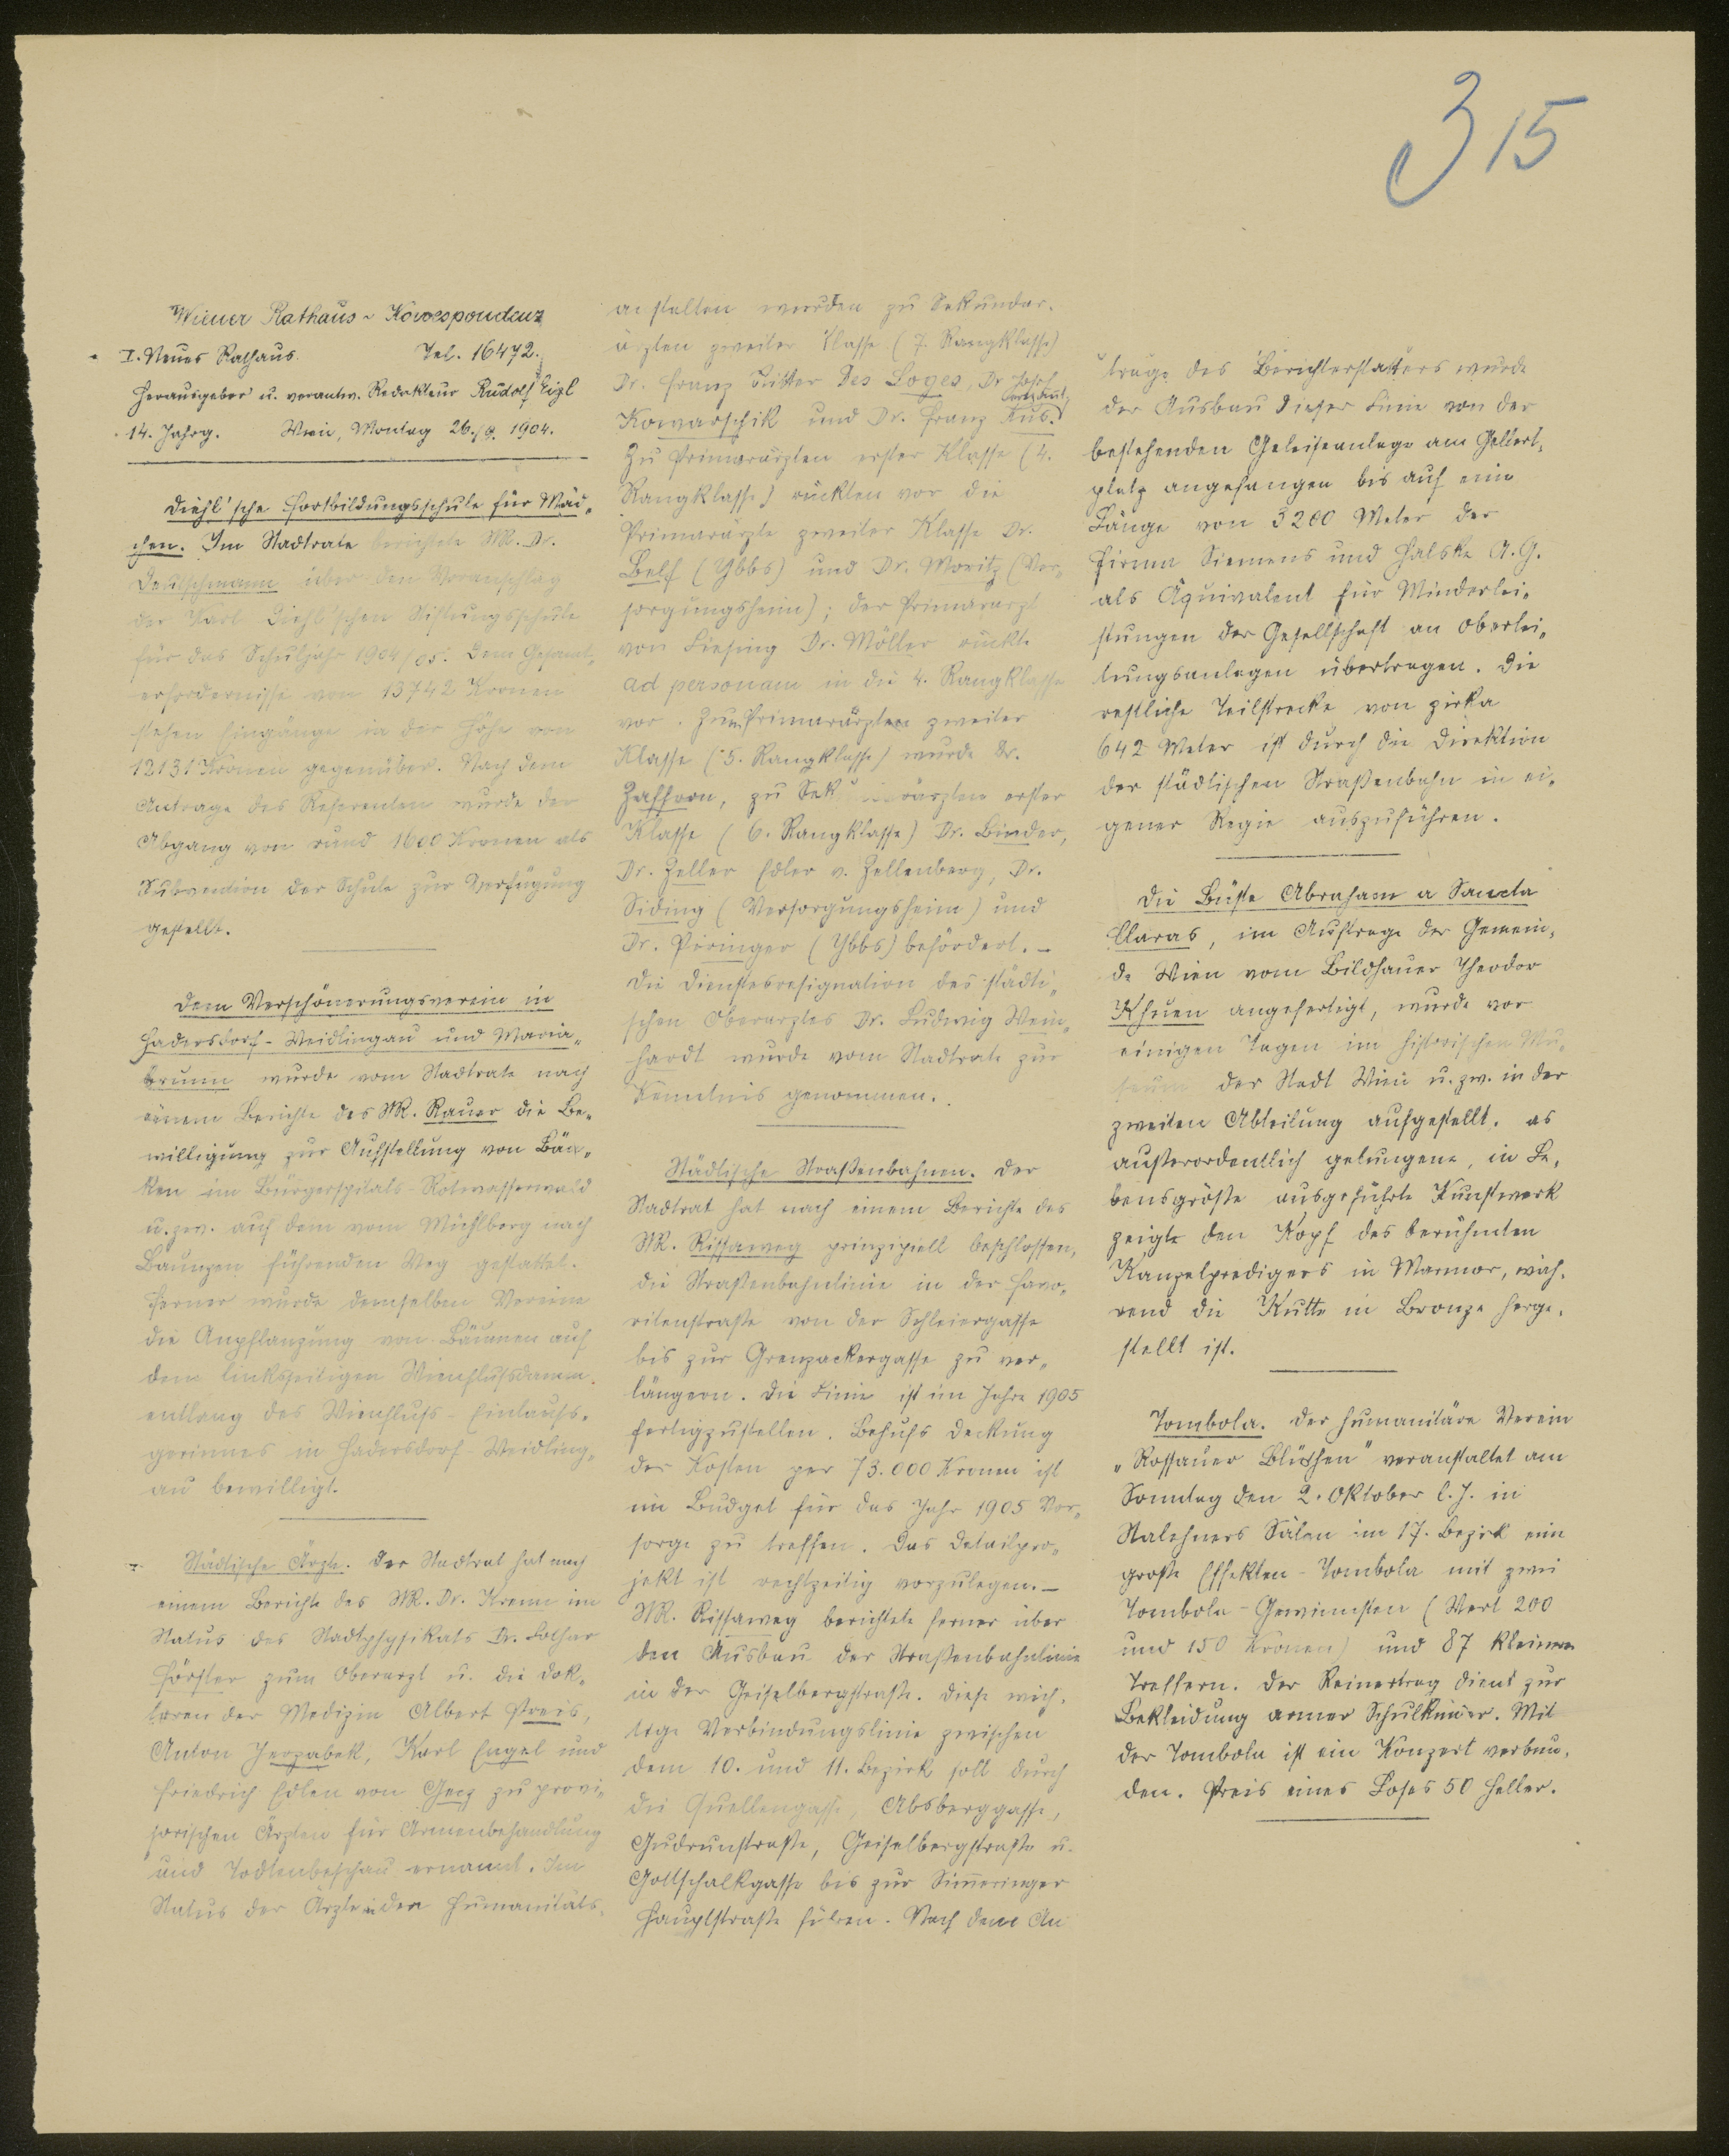 315
Wiener Rathaus-Korrespondenz
I. Neues Rathaus. Tel. 16472.
Herausgeber u. verantw. Redakteur Rudolf Eigl
14. Jahrg. Wien, Montag 26./9. 1904.
Diehl'sche Fortbildungsschule für Mäd-
chen. Im Stadtrate berichtete StR. Dr.
Deutschmann über den Voranschlag
der Karl Diehl'schen Stiftungsschule
für das Schuljahr 1904/05. Dem Gesamt-
erfordernisse von 13742 Kronen
stehen Eingänge in der Höhe von
12131 Kronen gegenüber. Nach dem
Antrage des Referenten wurde der
Abgang von rund 1600 Kronen als
Subvention der Schule zur Verfügung
gestellt.
Dem Verschönerungsverein in
Hadersdorf-Weidlingau und Maria-
brunn wurde vom Stadtrate nach
einem Berichte des StR. Rauer die Be-
willigung zur Aufstellung von Bän-
ken im Bürgerspitals-Rotwasserwald
u. zw. auf dem vom Mühlberg nach
Baunzen führenden Weg gestattet.
Ferner wurde demselben Vereine
die Anpflanzung von Bäumen auf
dem linksseitigen Wienflußdamm
entlang des Wienfluß-Einlaufs-
gerinnes in Hadersdorf-Weidling-
au bewilligt.
Städtische Ärzte. Der Stadtrat hat nach
einem Berichte des StR. Dr. Krenn im
Status des Stadtphysikats Dr. Lothar
Förster zum Oberarzt u. die Dok-
toren der Medizin Albert Preis,
Anton Jerzabek, Karl Engel und
Friedrich Edlen von Gerz zu provi-
sorischen Ärzten für Armenbehandlung
und Todtenbeschau ernannt. Im
Status der Ärzte in den Humanitäts-
anstalten wurden zu Sekundar-
ärzten zweiter Klasse (7. Rangklasse)
Dr. Franz Ritter Des Loges, Dr Josef
Kowarschik und Dr. Franz Kus.
Zu Primarärzten erster Klasse (4.
Rangklasse) rückten vor die
Primarärzte zweiter Klasse Dr.
Belf (Ybbs) und Dr. Moritz (Ver-
sorgungsheim); der Primararzt
von Liesing Dr. Möller rückte
ad personam in die 4. Rangklasse
vor. Zum Primarärzten zweiter
Klasse (5. Rangklasse) wurde Dr.
Zaffron, zu Sekundarärzten erster
Klasse (6. Rangklasse) Dr. Binder,
Dr. Zeller Edler v. Zellenberg, Dr.
Siding (Versorgungsheim) und
Dr. Piringer (Ybbs) befördert. –
Die Dienstesresignation des städti-
schen Oberarztes Dr. Ludwig Wein-
hardt wurde vom Stadtrate zur
Kenntnis genommen.
Städtische Straßenbahnen. Der
Stadtrat hat nach einem Berichte des
StR. Rissaweg prinzipiell beschlossen,
die Straßenbahnlinie in der Favo-
ritenstraße von der Schleiergasse
bis zur Grenzackergasse zu ver-
längern. Die Linie ist im Jahre 1905
fertigzustellen. Behufs Deckung
der Kosten per 73.000 Kronen ist
im Budget für das Jahr 1905 Vor-
sorge zu treffen. Das Detailpro-
jekt ist rechtzeitig vorzulegen. –
StR. Rissaweg berichtete ferner über
den Ausbau der Straßenbahnlinie
in der Geiselbergstraße. Diese wich-
tige Verbindungslinie zwischen
dem 10. und 11. Bezirk soll durch
die Quellengasse, Absberggasse,
Gudrunstraße, Geiselbergstraße u.
Gottschalkgasse bis zur Simmeringer
Hauptstraße führen. Nach dem An
trage des Berichterstatters wurde
der Ausbau dieser Linie von der
bestehenden Geleiseanlage am Gellert-
platz angefangen bis auf eine
Länge von 3200 Meter der
Firma Siemens und Halske A.G.
als Äquivalent für Minderlei-
stungen der Gesellschaft an Oberlei-
tungsanlagen übertragen. Die
restliche Teilstrecke von zirka
642 Meter ist durch die Direktion
der städtischen Straßenbahn in ei-
gener Regie auszuführen.
Die Büste Abraham a Sancta
Claras, im Auftrage der Gemein-
de Wien vom Bildhauer Theodor
Khuen angefertigt, wurde vor
einigen Tagen im historischen Mu-
seum der Stadt Wien u. zw. in der
zweiten Abteilung aufgestellt. as
außerordentlich gelungene, in Le-
bensgröße ausgeführte Kunstwerk
zeigt den Kopf des berühmten
Kanzelpredigers in Marmor, wäh-
rend die Kutte in Bronze herge-
stellt ist.
Tombola. Der humanitäre Verein
„Rossauer Blüthen" veranstaltet am
Sonntag den 2. Oktober l. J. in
Stalehners Sälen im 17. Bezirk eine
große Effekten-Tombola mit zwei
Tombola-Gewinnsten (Wert 200
und 150 Kronen) und 87 kleinen
Treffern. Der Reinertrag dient zur
Bekleidung armer Schulkinder. Mit
der Tombola ist ein Konzert verbun-
den. Preis eines Loses 50 Heller.